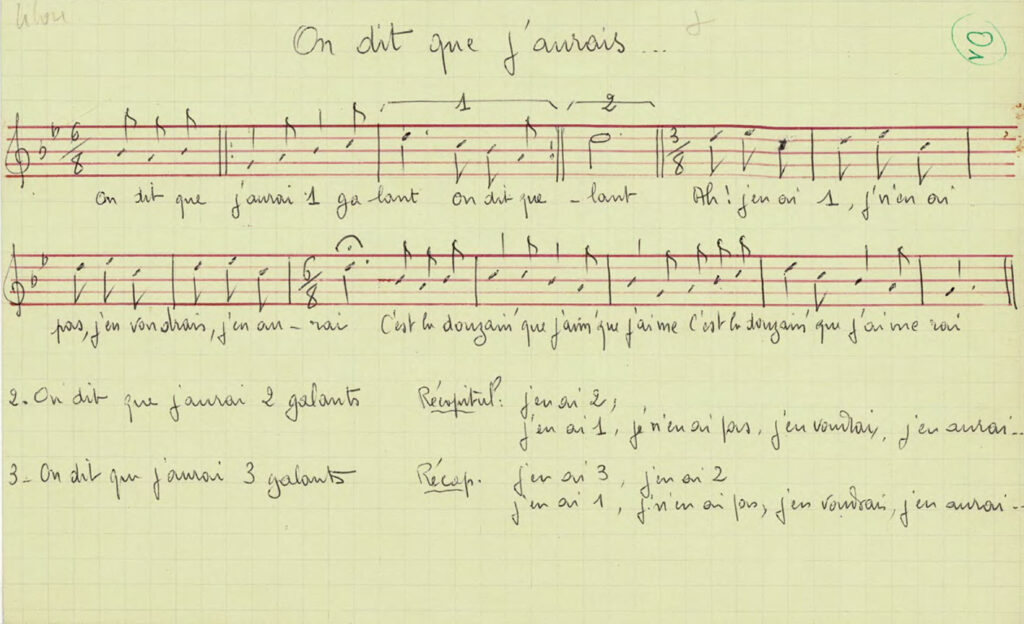 On dit que j'aurais...
1 2
6/8 3/8
On dit que j'aurai 1 galant on dit que - lant Ah! j'en ai 1, j'n'en ai
6/8
pas, j'en voudrais, j'en au - rai C'est la douzain' que j'aim' que j'aime C'est la douzain' que j'aime rai
2. On dit que j'aurai 2 galants Récapitul°: j'en ai 2,
j'en ai 1, je n'en ai pas, j'en voudrais, j'en aurai...
3 - On dit que j'aurai 3 galants Récap. j'en ai 3, j'en ai 2
j'en ai 1, j'n'en ai pas, j'en voudrais, j'en aurai...